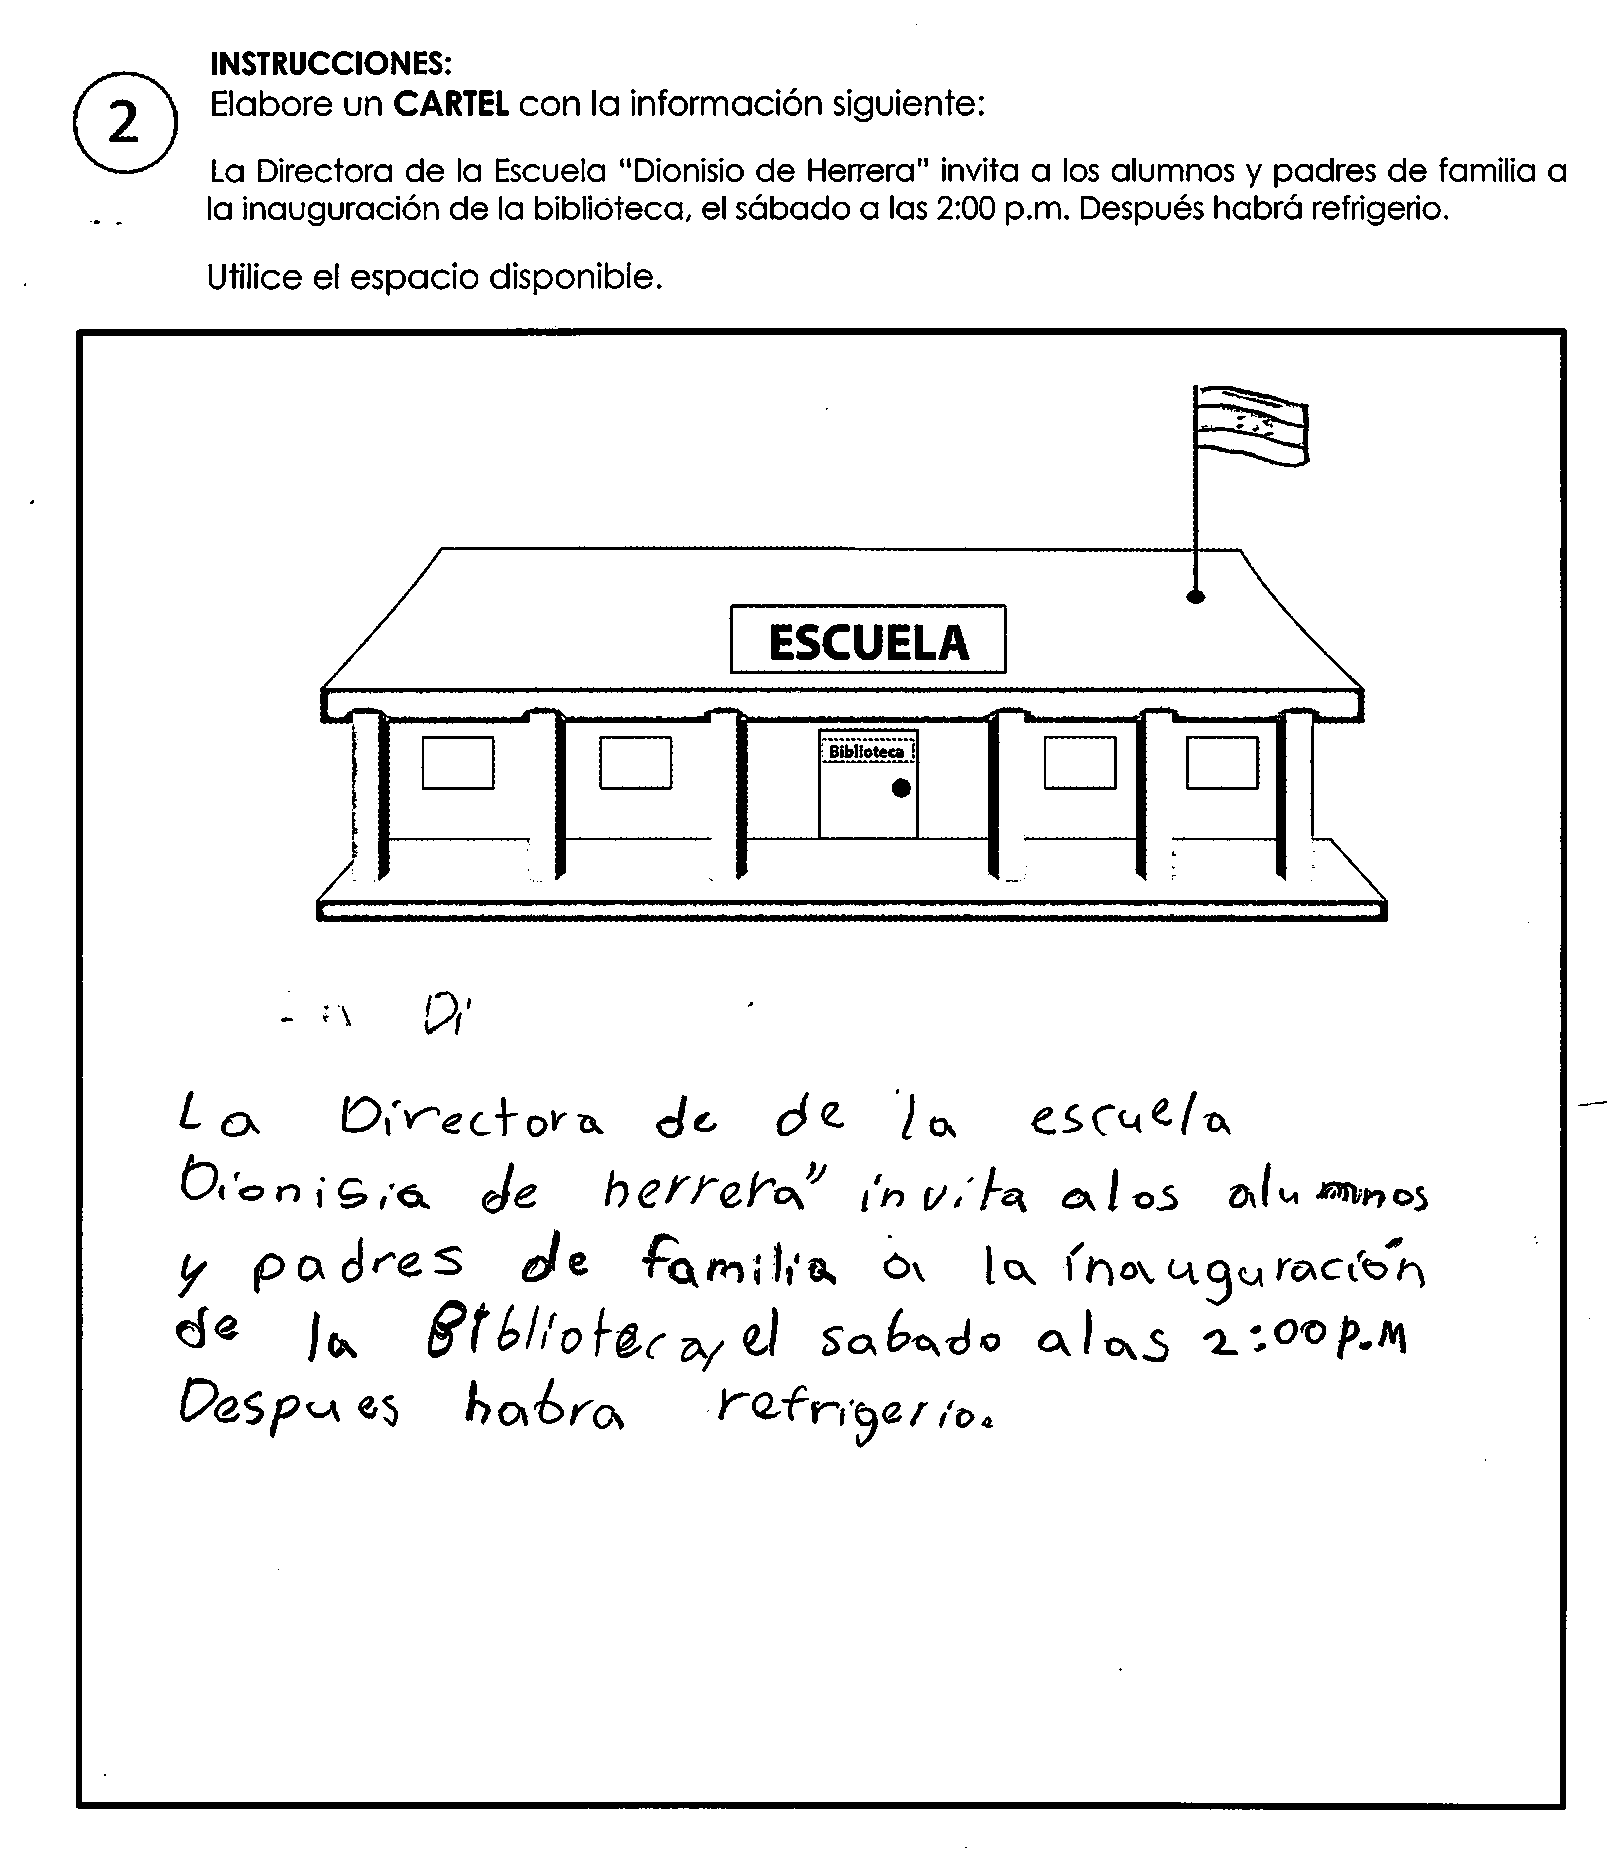 2
INSTRUCCIONES:
Elabore un CARTEL con la información siguiente:
La Directora de la Escuela "Dionisio de Herrera" invita a los alumnos y padres de familia a
la inauguración de la biblioteca, el sábado a las 2:00 p.m. Después habrá refrigerio.
Utilice el espacio disponible.
ESCUELA
Biblioteca
Di
La Directora de de la escuela
Dionisia de herrera" invita alos alumnos
y padres de familia a la inauguración
de la Biblioteca, el sabado alas 2:00 p.M
Despues habra refrigerio.